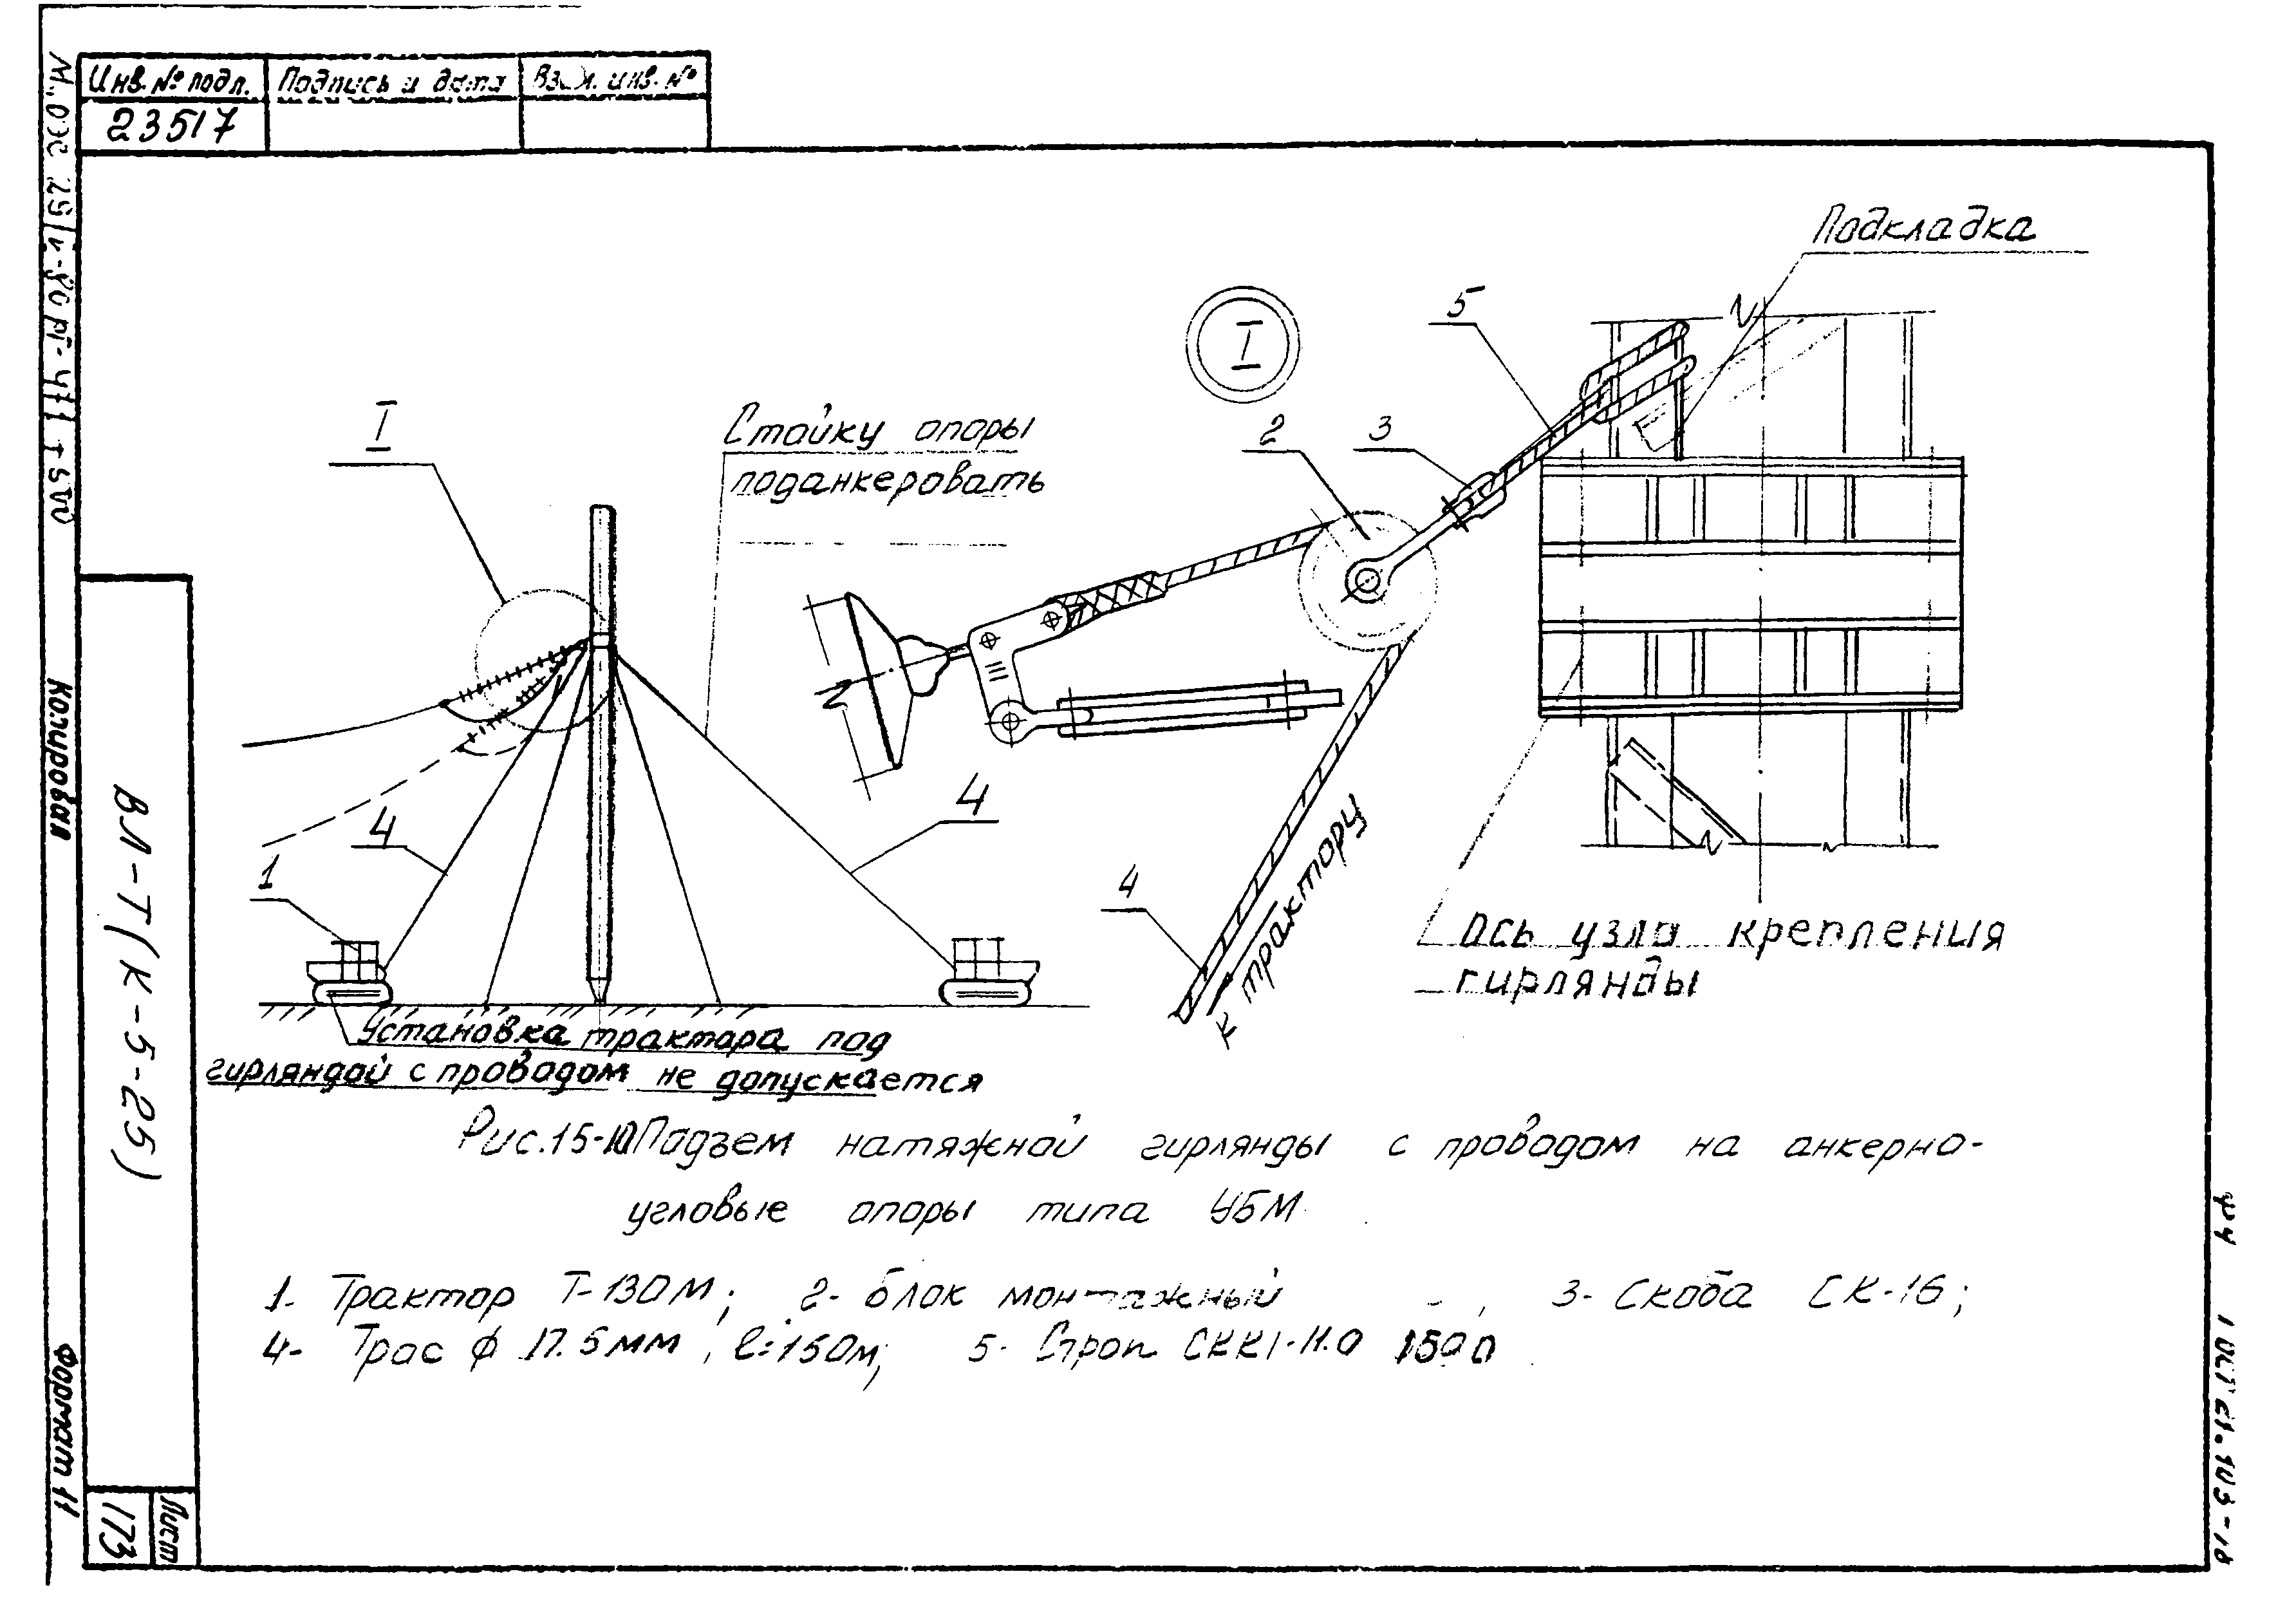 Инв. № подл.
Подпись и дата
Взам. инв. №
23517
Подкладка
I
5
I
2
3
Стойку опоры
поданкеровать
4
4
1
4
к трактору
Ось узла крепления
гирлянды
Установка трактора под
гирляндой с проводом не допускается
Рис.15-10 Подъем натяжной гирлянды с проводом на анкерно-
угловые опоры типа УБМ
1- Трактор Т-130М; 2- блок монтажный , 3- Скоба СК-16;
4- Трос ф 17.5мм, l=150м; 5- Строп СКК1-11.0 1500
Копировал
Формат 11
ВЛ-Т(К-5-25)
Лист
173